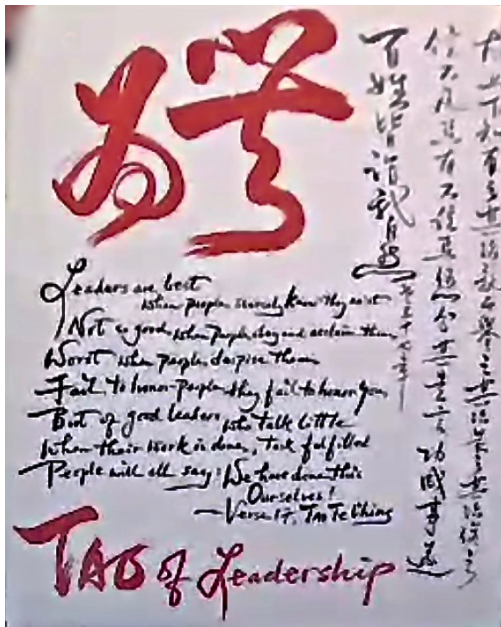 無為
信不足焉有不信焉 功成事遂
百姓皆謂我自然
Leaders are best
when people scarcely know they exist
Not so good when people obey and acclaim them
Worst when people despise them
Fail to honor people they fail to honor you
But of good leaders who talk little
When their work is done, Task fulfilled
People will all say: We have done this
Ourselves!
— Verse 17, Tao Te Ching
TAO of Leadership